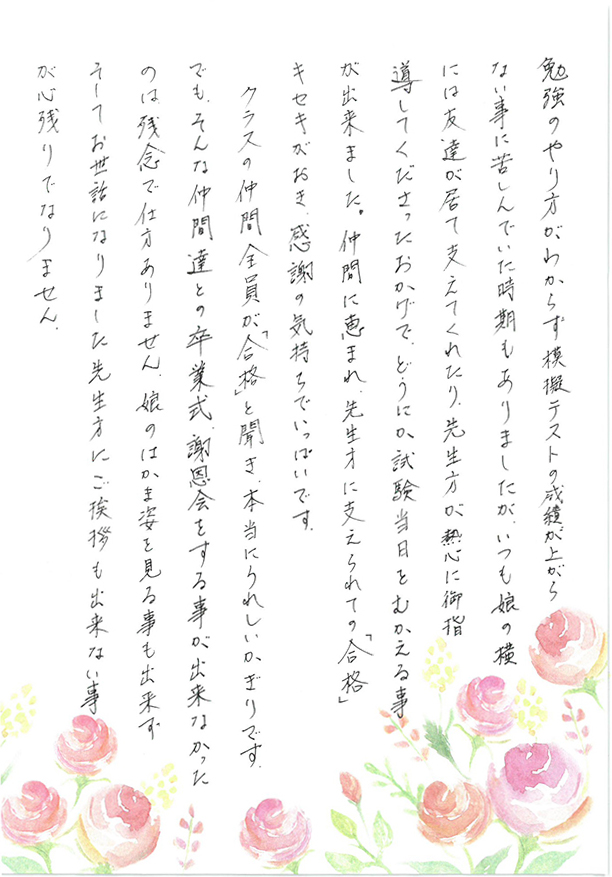 勉強のやり方がわからず模擬テストの成績が上がら
ない事に苦しんでいた時期もありましたが、いつも娘の横
には友達が居て支えてくれたり、先生方が熱心に御指
導してくださったおかげで、どうにか試験当日をむかえる事
が出来ました。仲間に恵まれ、先生方に支えられての「合格」
キセキがおき、感謝の気持ちでいっぱいです。
クラスの仲間全員が「合格」と聞き、本当にうれしいかぎりです。
でも、そんな仲間達との卒業式、謝恩会をする事が出来なかった
のは残念で仕方ありません。娘のはかま姿を見る事も出来ず
そしてお世話になりました先生方にご挨拶も出来ない事
が心残りでなりません。